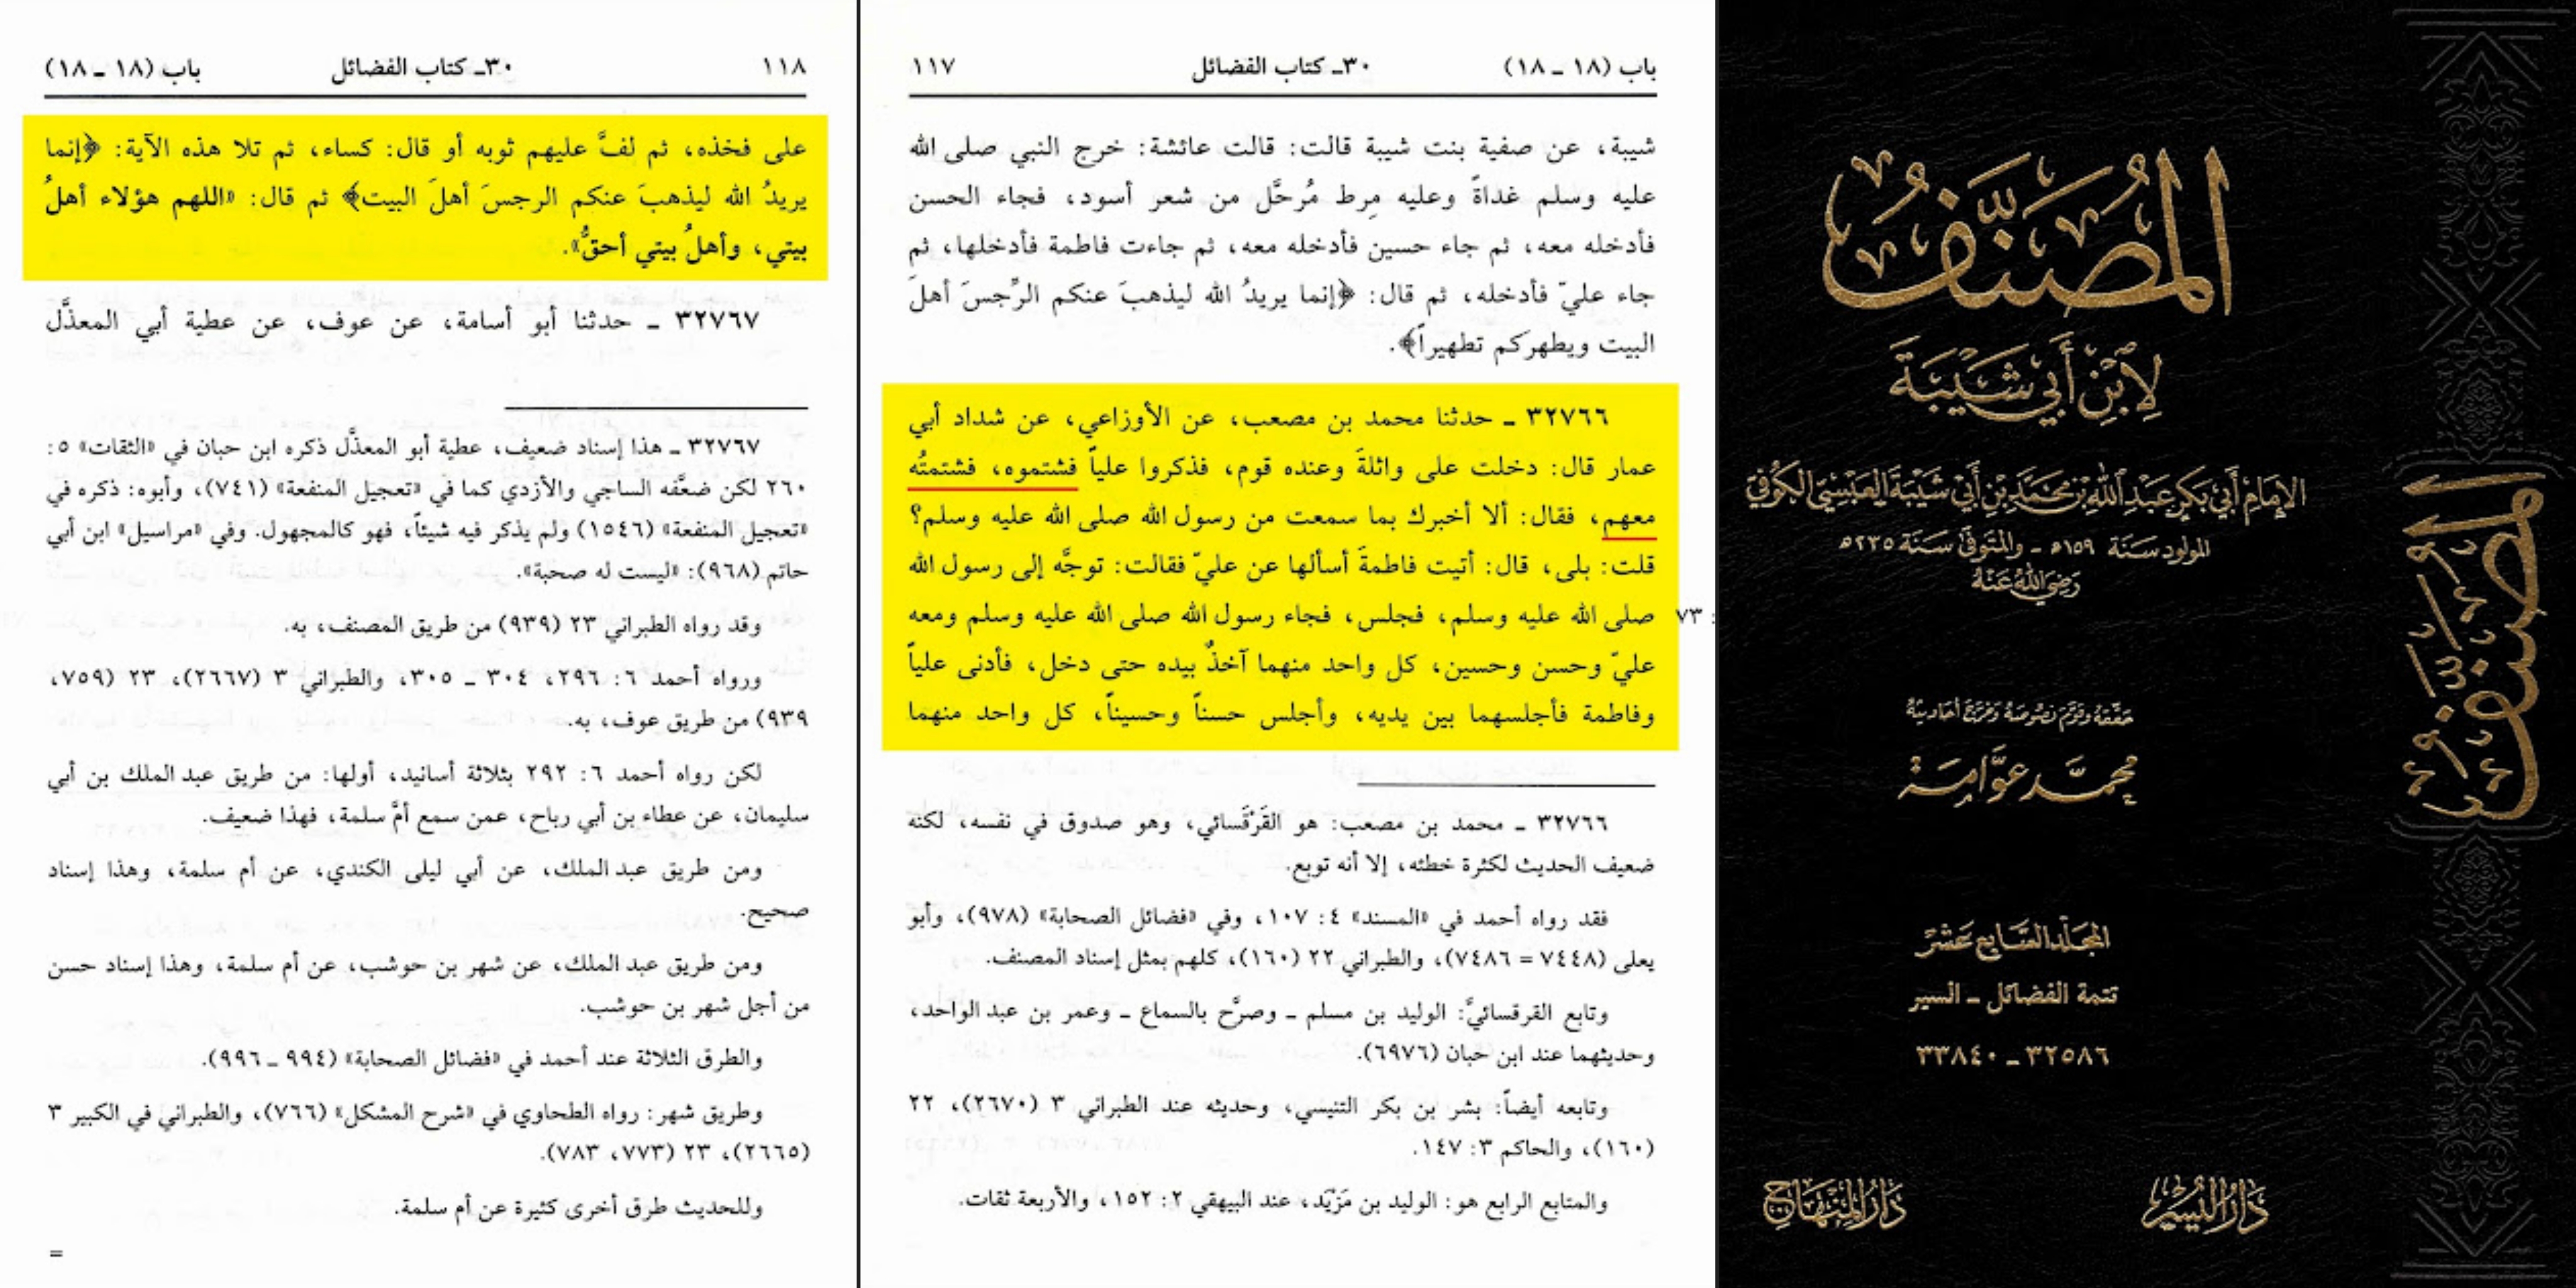 المصنف
لابن أبي شيبة
الإمام أبي بكر عبد الله بن محمد بن أبي شيبة العبسي الكوفي
المولود سنة ١٥٩ه - والمتوفى سنة ٢٣٥ه
رضي الله عنه
حققه وقوم نصوصه وخرج أحاديثه
محمد عوامة
المجلد السابع عشر
تتمة الفضائل - السير
٣٢٥٨٦ - ٣٣٨٤٠
دار اليسر
دار المنهاج
المصنف
باب (١٨ - ١٨)
٣٠- كتاب الفضائل
١١٧
شيبة، عن صفية بنت شيبة قالت: قالت عائشة: خرج النبي صلى الله
عليه وسلم غداةً وعليه مِرط مُرحَّل من شعر أسود، فجاء الحسن
فأدخله معه، ثم جاء حسين فأدخله معه، ثم جاءت فاطمة فأدخلها، ثم
جاء عليّ فأدخله، ثم قال: ﴿إنما يريدُ الله ليذهبَ عنكم الرِّجسَ أهلَ
البيت ويطهركم تطهيراً﴾.
٣٢٧٦٦ - حدثنا محمد بن مصعب، عن الأوزاعي، عن شداد أبي
عمار قال: دخلت على واثلةَ وعنده قوم، فذكروا علياً فشتموه، فشتمتُه
معهم، فقال: ألا أخبرك بما سمعت من رسول الله صلى الله عليه وسلم؟
قلت: بلى، قال: أتيت فاطمةَ أسألها عن عليّ فقالت: توجَّه إلى رسول الله
صلى الله عليه وسلم، فجلس، فجاء رسول الله صلى الله عليه وسلم ومعه
: ٧٣
عليّ وحسن وحسين، كل واحد منهما آخذٌ بيده حتى دخل، فأدنى علياً
وفاطمة فأجلسهما بين يديه، وأجلس حسناً وحسيناً، كل واحد منهما
٣٢٧٦٦ - محمد بن مصعب: هو القَرْقَسائي، وهو صدوق في نفسه، لكنه
ضعيف الحديث لكثرة خطئه، إلا أنه توبع.
فقد رواه أحمد في «المسند» ٤: ١٠٧، وفي «فضائل الصحابة» (٩٧٨)، وأبو
يعلى (٧٤٤٨ = ٧٤٨٦)، والطبراني ٢٢ (١٦٠)، كلهم بمثل إسناد المصنف.
وتابع القرقسائيَّ: الوليد بن مسلم - وصرَّح بالسماع - وعمر بن عبد الواحد،
وحديثهما عند ابن حبان (٦٩٧٦).
وتابعه أيضاً: بشر بن بكر التنيسي، وحديثه عند الطبراني ٣ (٢٦٧٠)، ٢٢
(١٦٠)، والحاكم ٣: ١٤٧.
والمتابع الرابع هو: الوليد بن مَزْيَد، عند البيهقي ٢: ١٥٢، والأربعة ثقات.
١١٨
٣٠- كتاب الفضائل
باب (١٨ - ١٨)
على فخذه، ثم لفَّ عليهم ثوبه أو قال: كساء، ثم تلا هذه الآية: ﴿إنما
يريدُ الله ليذهبَ عنكم الرجسَ أهلَ البيت﴾ ثم قال: «اللهم هؤلاء أهلُ
بيتي، وأهلُ بيتي أحقُّ».
٣٢٧٦٧ - حدثنا أبو أسامة، عن عوف، عن عطية أبي المعذَّل
٣٢٧٦٧ - هذا إسناد ضعيف، عطية أبو المعذَّل ذكره ابن حبان في «الثقات» ٥:
٢٦٠ لكن ضعَّفه الساجي والأزدي كما في «تعجيل المنفعة» (٧٤١)، وأبوه: ذكره في
«تعجيل المنفعة» (١٥٤٦) ولم يذكر فيه شيئاً، فهو كالمجهول. وفي «مراسيل» ابن أبي
حاتم (٩٦٨): «ليست له صحبة».
وقد رواه الطبراني ٢٣ (٩٣٩) من طريق المصنف، به.
ورواه أحمد ٦: ٢٩٦، ٣٠٤ - ٣٠٥، والطبراني ٣ (٢٦٦٧)، ٢٣ (٧٥٩،
٩٣٩) من طريق عوف، به.
لكن رواه أحمد ٦: ٢٩٢ بثلاثة أسانيد، أولها: من طريق عبد الملك بن أبي
سليمان، عن عطاء بن أبي رباح، عمن سمع أمَّ سلمة، فهذا ضعيف.
ومن طريق عبد الملك، عن أبي ليلى الكندي، عن أم سلمة، وهذا إسناد
صحيح.
ومن طريق عبد الملك، عن شهر بن حوشب، عن أم سلمة، وهذا إسناد حسن
من أجل شهر بن حوشب.
والطرق الثلاثة عند أحمد في «فضائل الصحابة» (٩٩٤ - ٩٩٦).
وطريق شهر: رواه الطحاوي في «شرح المشكل» (٧٦٦)، والطبراني في الكبير ٣
(٢٦٦٥)، ٢٣ (٧٧٣، ٧٨٣).
وللحديث طرق أخرى كثيرة عن أم سلمة.
=